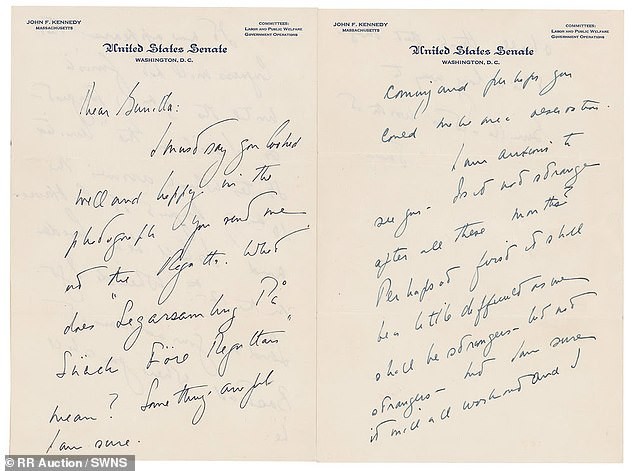 JOHN F. KENNEDY
MASSACHUSETTS
COMMITTEES:
LABOR AND PUBLIC WELFARE
GOVERNMENT OPERATIONS
United States Senate
WASHINGTON, D. C.
Dear Gunilla:
I must say you looked
well and happy in the
photograph you send me
at the Regatta. What
does "Segarsamling På
Smäch Före Regattan"
mean? Something awful
I am sure.
JOHN F. KENNEDY
MASSACHUSETTS
COMMITTEES:
LABOR AND PUBLIC WELFARE
GOVERNMENT OPERATIONS
United States Senate
WASHINGTON, D. C.
coming and perhaps you
could make me a reservation.
I am anxious to
see you - Is it not strange
after all these months?
Perhaps at first it shall
be a little difficult as we
shall be strangers - but not
strangers - but I am sure
it will all work out and I
© RR Auction / SWNS